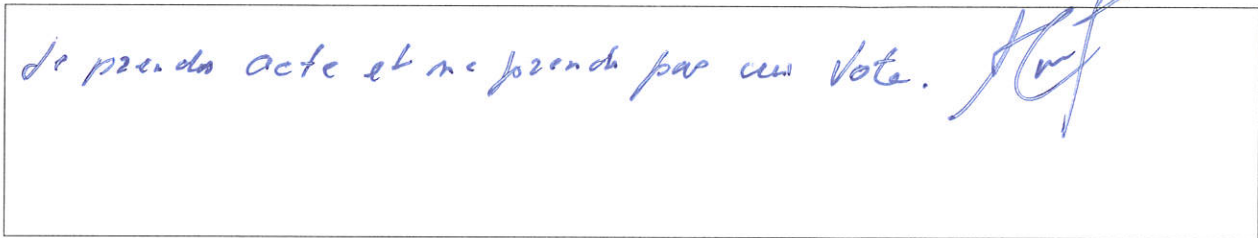 Je prends acte et ne prends pas au Vote.